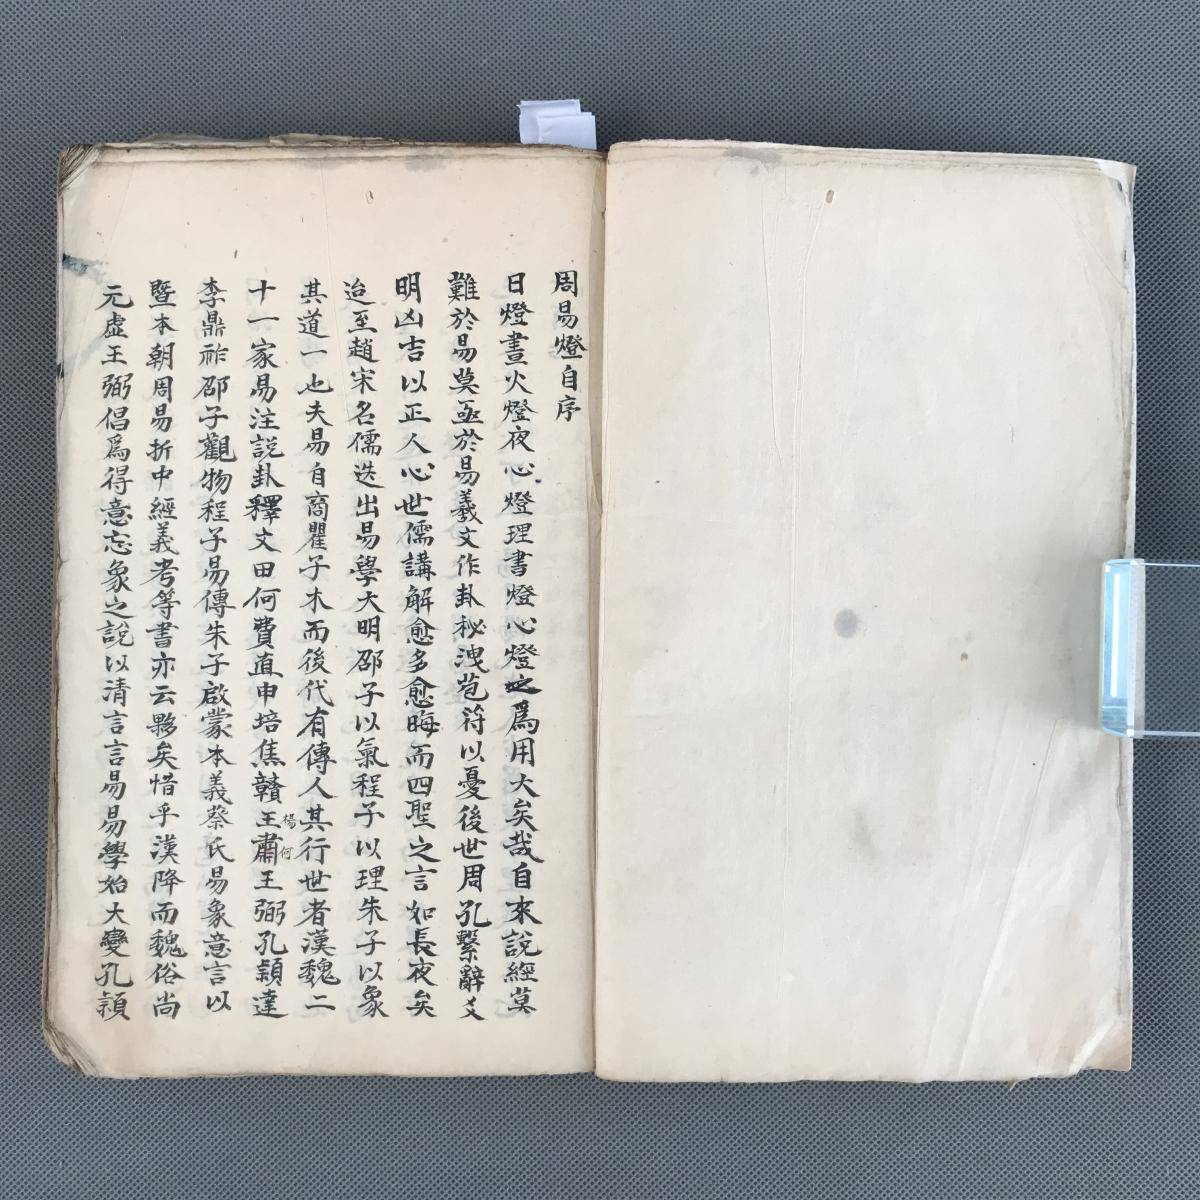 周易燈自序
日燈晝火燈夜心燈理書燈心燈之爲用大矣哉自來說經莫
難於易莫亟於易羲文作卦秘洩苞符以憂後世周孔繫辭爻
明凶吉以正人心世儒講解愈多愈晦而四聖之言如長夜矣
迨至趙宋名儒迭出易學大明邵子以氣程子以理朱子以象
其道一也夫易自商瞿子木而後代有傳人其行世者漢魏二
十一家易注說卦釋文田何費直申培焦贛王肅王弼孔頴達
楊何
李鼎祚邵子觀物程子易傳朱子啟蒙本義蔡氏易象意言以
暨本朝周易折中經義考等書亦云夥矣惜乎漢降而魏俗尚
元虛王弼倡爲得意忘象之說以清言言易易學始大變孔頴